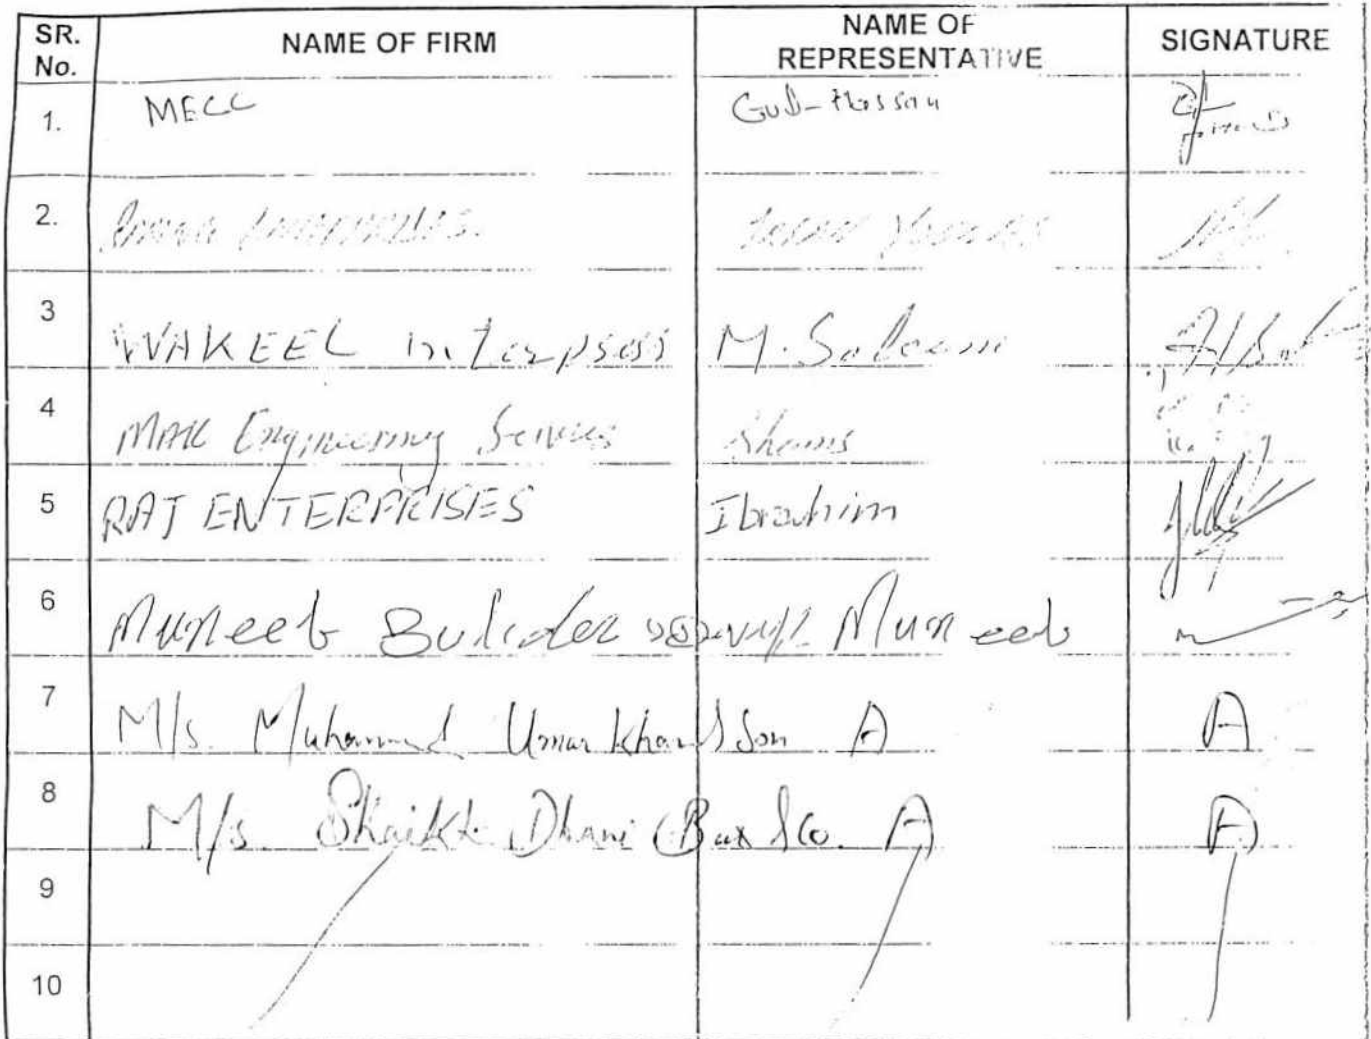 SR. No. NAME OF FIRM NAME OF REPRESENTATIVE SIGNATURE
1. MECC Gul-Hassan
2.
3 WAKEEL M. Saleem
4 MAK Engineering Services Shams
5 RAJ ENTERPRISES Ibrahim
6 Muneeb Builder Muneeb
7 M/s. Muhammad Umar Khan & Son A A
8 M/s. Shaikh Dhani Bux & Co. A A
9
10